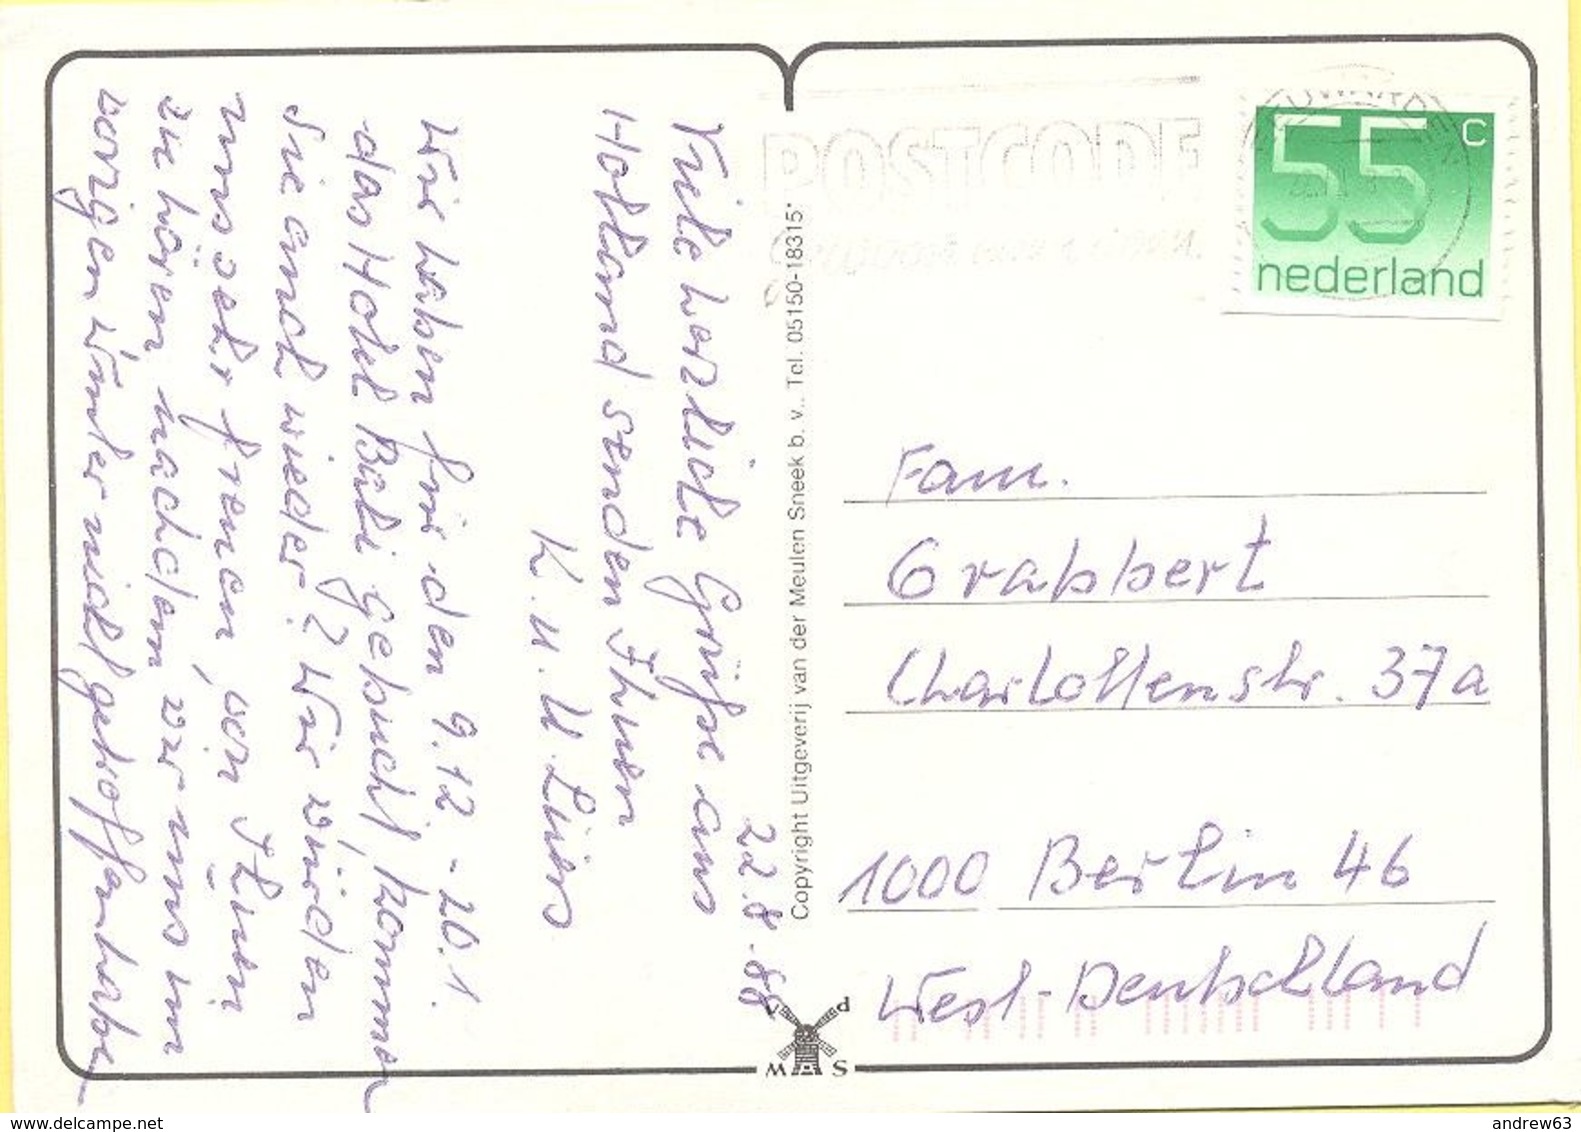 22.8.88
Viele herzliche Grüße aus
Holland senden Ihnen
K. u. U. Lüers
Wir haben für den 9.12. - 20.1.
das Hotel Bali gebucht, kommen
Sie auch wieder? Wir würden
uns sehr freuen, von Ihnen
zu hören nachdem wir uns im
vorigen Winter nicht getroffen haben
Copyright Uitgeverij van der Meulen Sneek b.v.. Tel. 05150-18315*
POSTCODE
55 C
nederland
Fam.
Grabbert
Charlottenstr. 37a
1000 Berlin 46
West-Deutschland
www.delcampe.net
andrew63